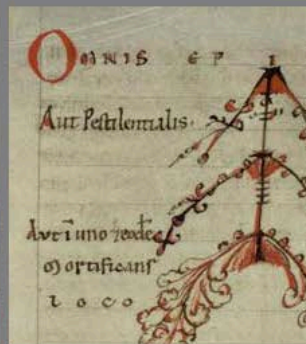 OMNIS EP I
Aut Pestilentialis.
Aut ī uno
Mortificans
loco